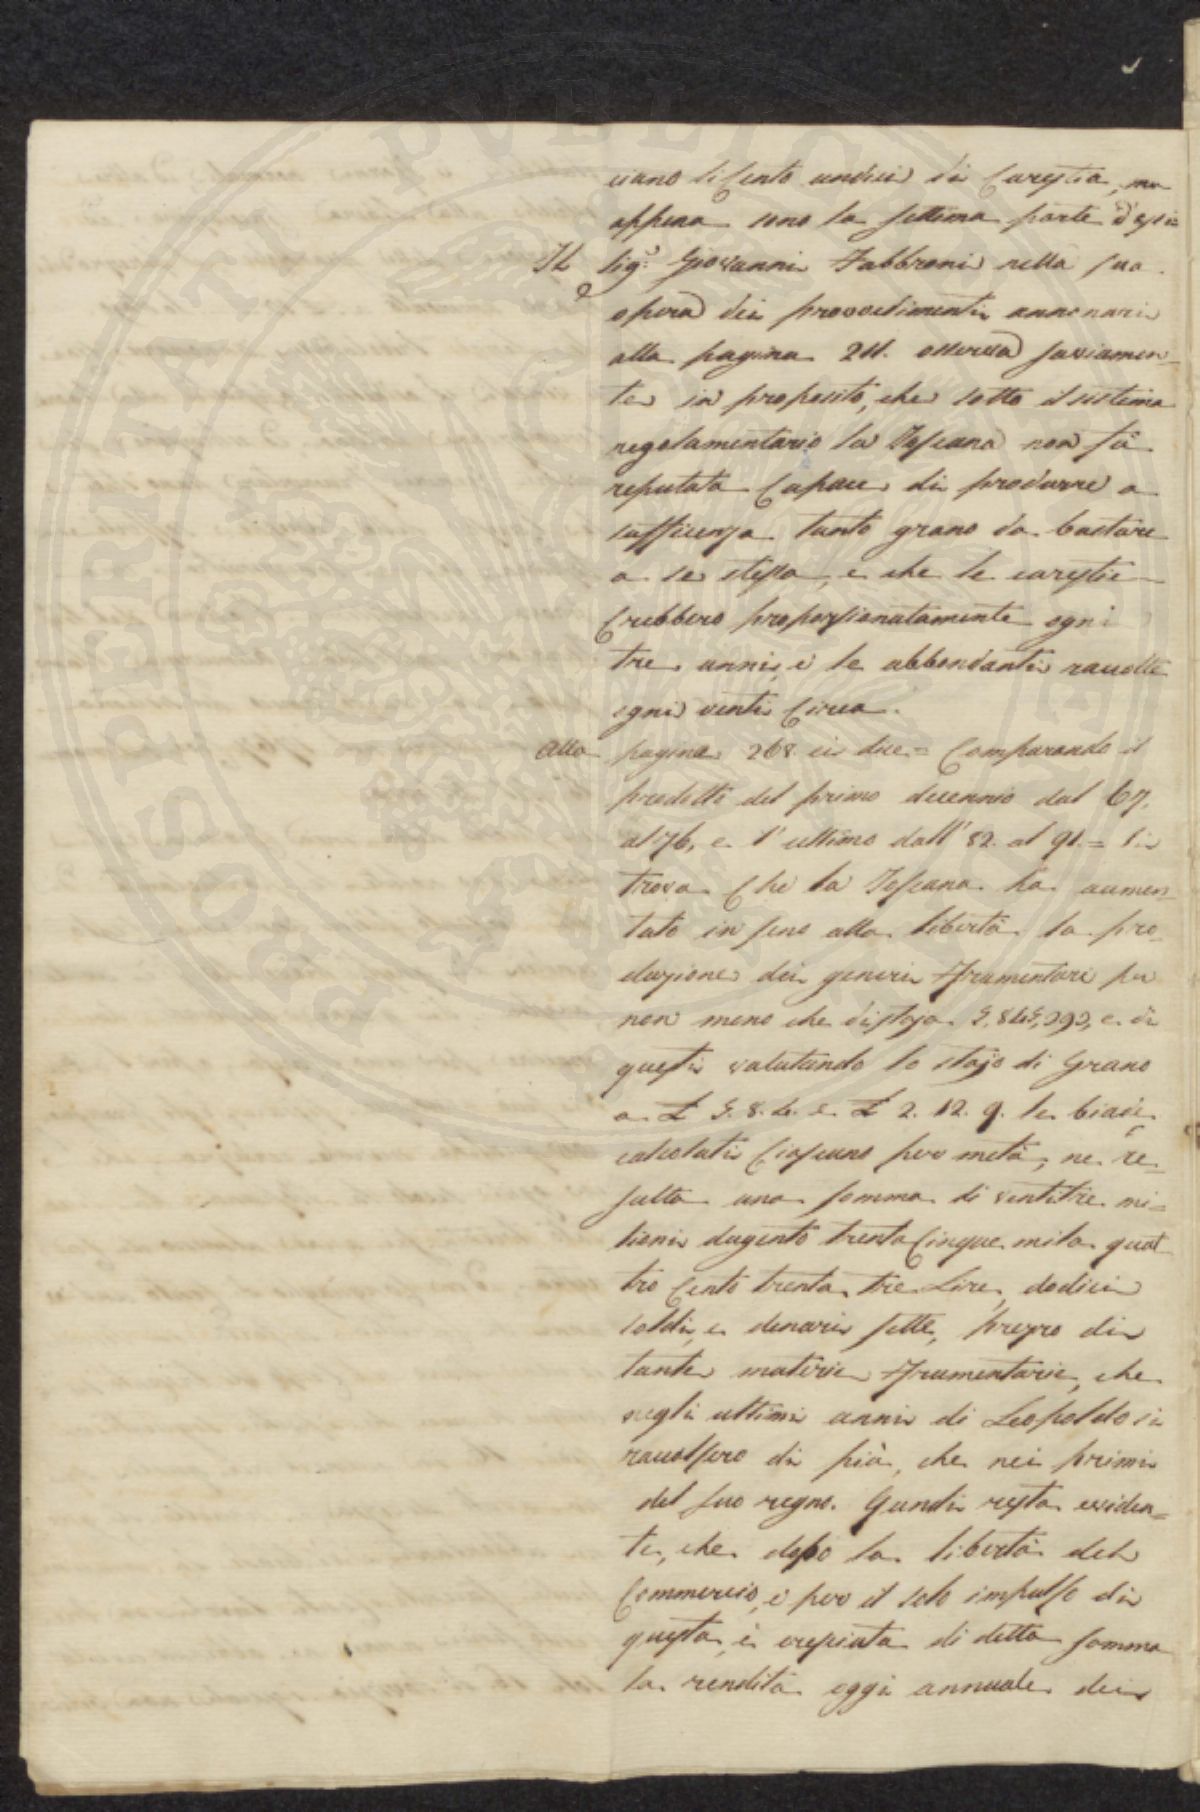 ciano li Cento undici di Carestia, ma
appena sono la settima parte d'essi
Il Sig.r Giovanni Fabbroni nella sua
opera dei provvedimenti annonari
alla pagina 211. osserva saviamen-
te in proposito, che sotto il sistema
regolamentario la Toscana non fù
reputata Capace di produrre a
sufficenza tanto grano da bastare
a se stessa, e che le carestie
Crebbero proporzionatamente ogni
tre anni, e le abbondanti raccolte
ogni venti Circa.
Alla pagina 268. ei dice = Comparando il
prodotto del primo decennio dal 67.
al 76, e l'ultimo dall' 82. al 91. = Si
trova Che la Toscana ha aumen-
tato in seno alla libertà la pro-
duzione dei generi Frumentari per
non meno che di staja 5,845,292, e di
questi valutando lo stajo di Grano
a £ 5. 8. 4. e £ 2. 12. 9. le biade
calcolati Ciascuno per metà, ne re-
sulta una somma di ventitre mi=
lioni dugento trenta Cinque mila quat
tro Cento trenta tre Lire, dodici
soldi, e denari sette, prezzo di
tante materie Frumentarie, che
negli ultimi anni di Leopoldo si
raccolsero di più, che nei primi
del suo regno. Quindi resta eviden=
te, che dopo la libertà del
Commercio, e per il solo impulso di
questa, è cresciuta di detta somma
la rendita oggi annuale dei
PROSPERITATI PVBLICAE